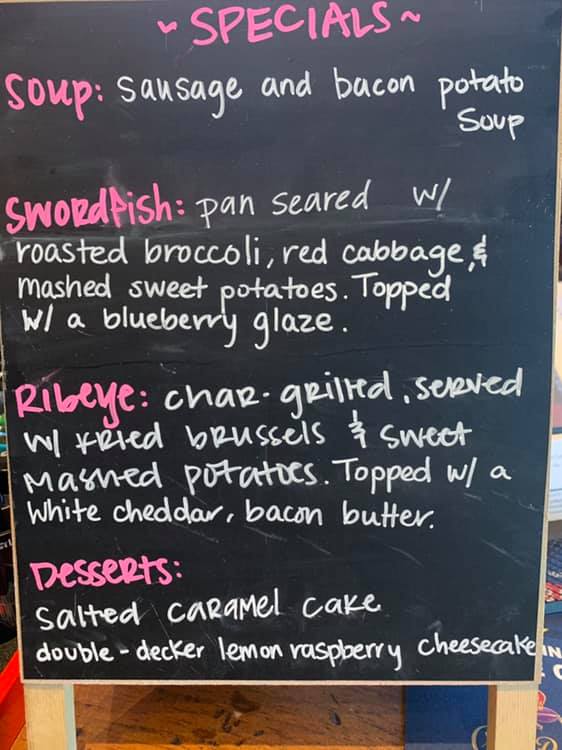 ~ SPECIALS ~
Soup: Sausage and bacon potato
Soup
Swordfish: pan seared w/
roasted broccoli, red cabbage, &
mashed sweet potatoes. Topped
w/ a blueberry glaze.
Ribeye: char-grilled, served
w/ fried brussels & sweet
mashed potatoes. Topped w/ a
white cheddar, bacon butter.
Desserts:
Salted caramel cake
double-decker lemon raspberry cheesecake